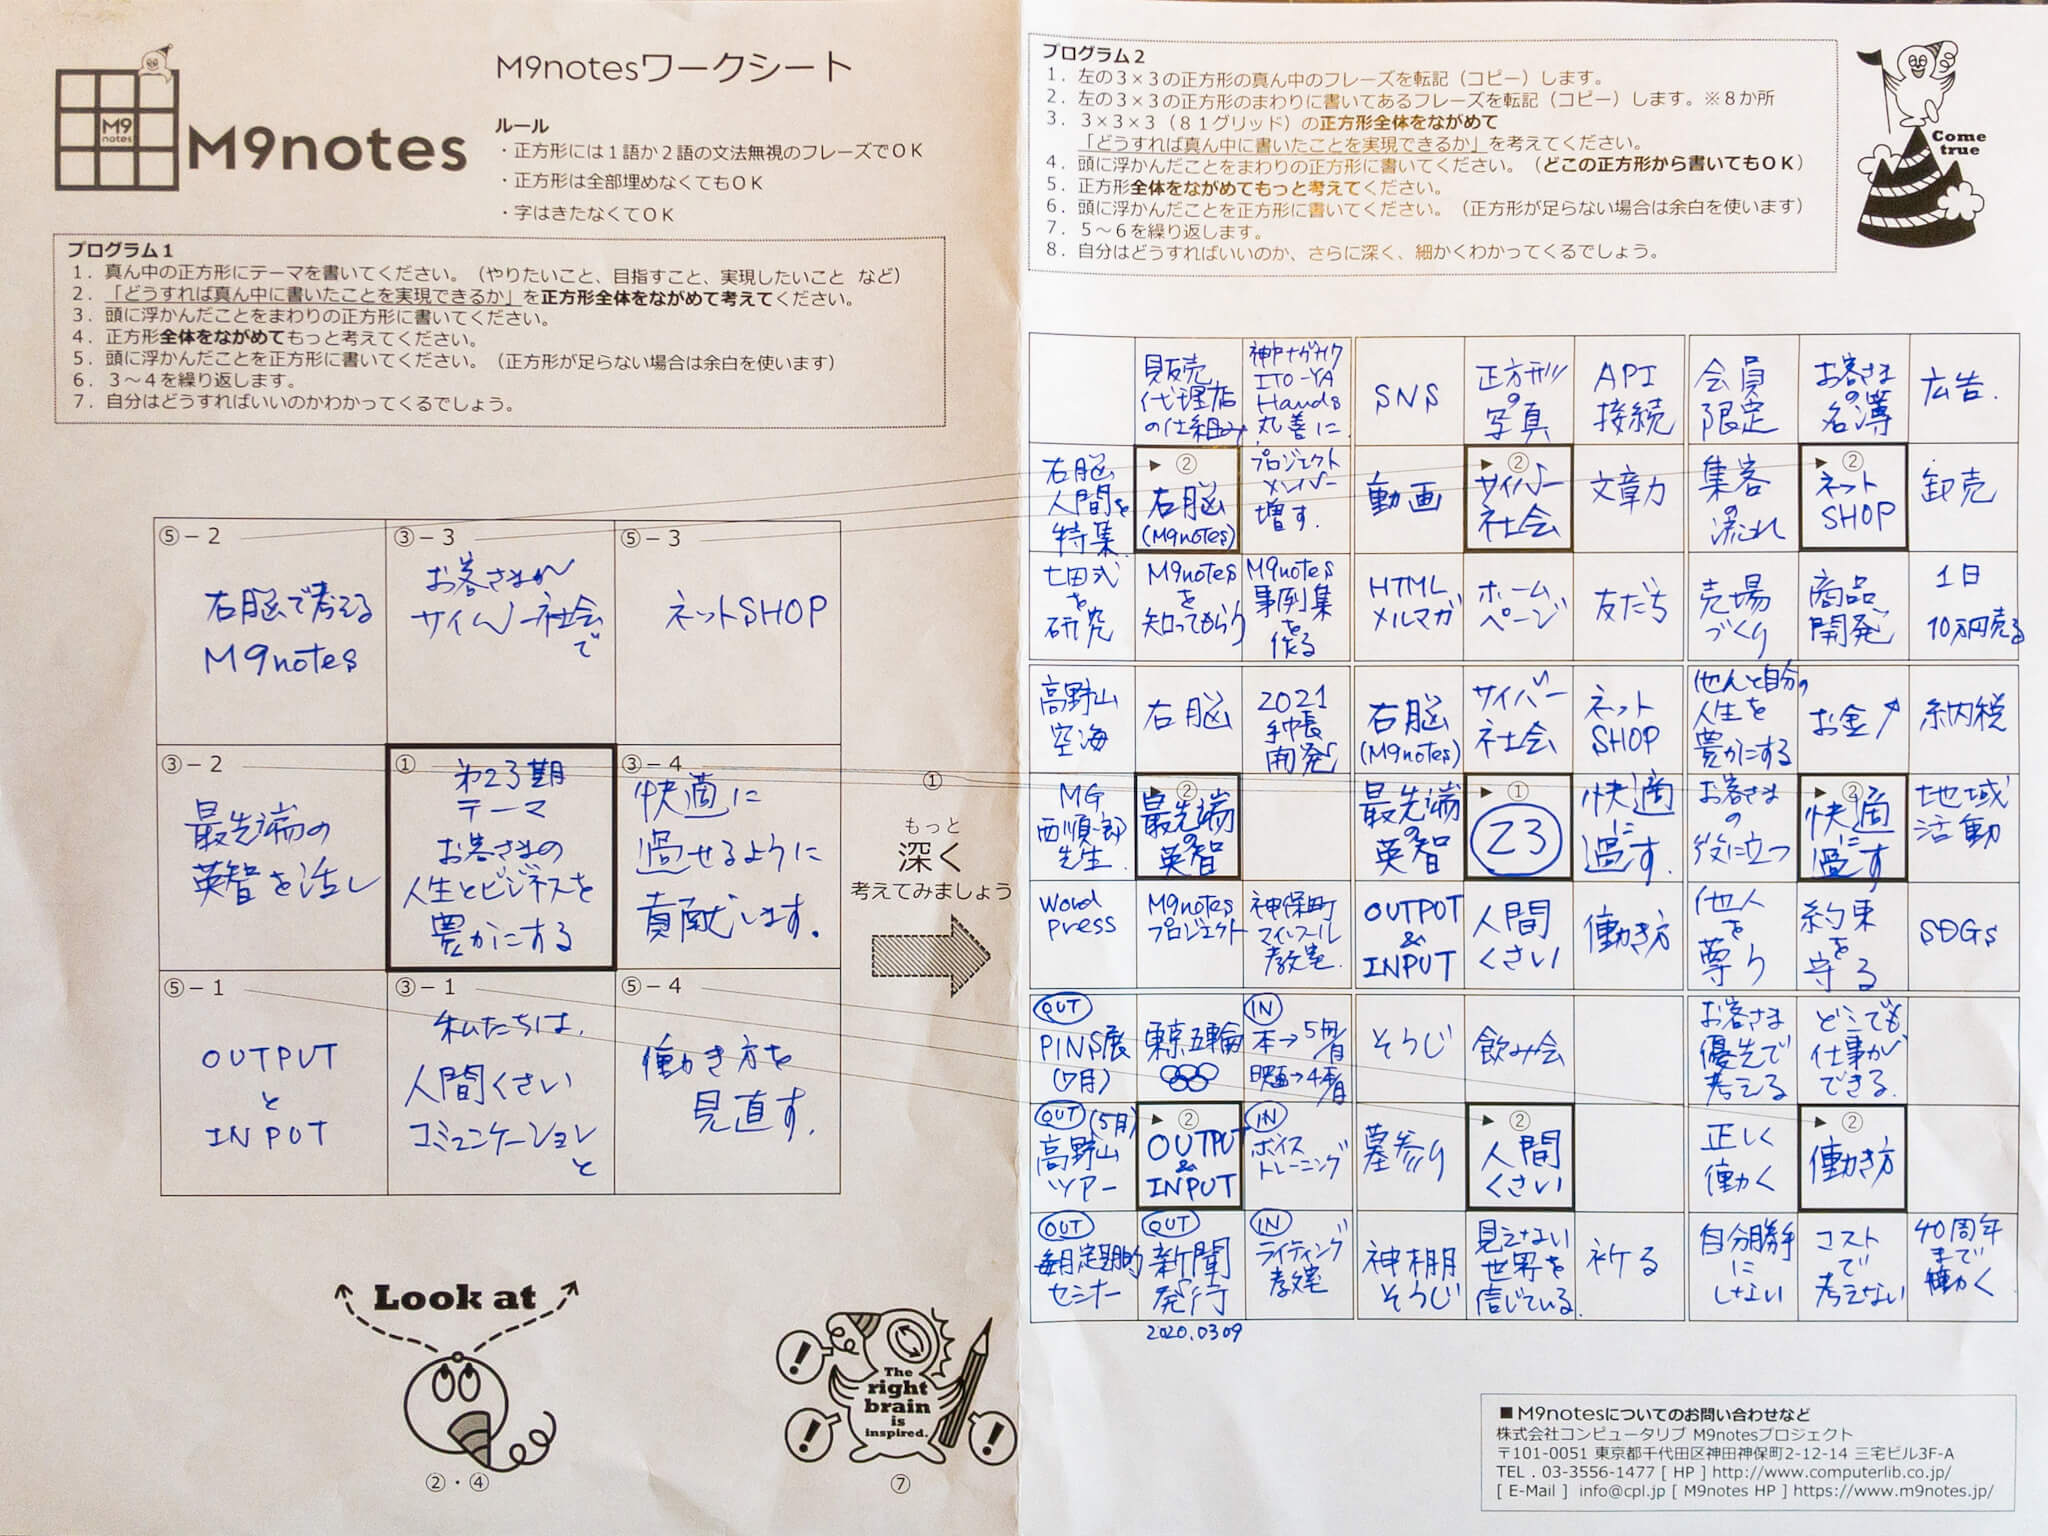 M9
notes
M9notes
M9notesワークシート
ルール
・正方形には1語か2語の文法無視のフレーズでOK
・正方形は全部埋めなくてもOK
・字はきたなくてOK
プログラム1
1．真ん中の正方形にテーマを書いてください。（やりたいこと、目指すこと、実現したいこと など）
2．「どうすれば真ん中に書いたことを実現できるか」を正方形全体をながめて考えてください。
3．頭に浮かんだことをまわりの正方形に書いてください。
4．正方形全体をながめてもっと考えてください。
5．頭に浮かんだことを正方形に書いてください。（正方形が足らない場合は余白を使います）
6．3～4を繰り返します。
7．自分はどうすればいいのかわかってくるでしょう。
⑤－2
右脳で考える
M9notes
③－3
お客さまが
サイバー社会で
⑤－3
ネットSHOP
③－2
最先端の
英智を活し
①
第23期
テーマ
お客さまの
人生とビジネスを
豊かにする
③－4
快適に
過せるように
貢献します。
⑤－1
OUTPUT
と
INPUT
③－1
私たちは、
人間くさい
コミュニケーションと
⑤－4
働き方を
見直す。
①
もっと
深く
考えてみましょう
Look at
②・④
The
right
brain
is
inspired.
⑦
プログラム2
1．左の3×3の正方形の真ん中のフレーズを転記（コピー）します。
2．左の3×3の正方形のまわりに書いてあるフレーズを転記（コピー）します。※8か所
3．3×3×3（81グリッド）の正方形全体をながめて
「どうすれば真ん中に書いたことを実現できるか」を考えてください。
4．頭に浮かんだことをまわりの正方形に書いてください。（どこの正方形から書いてもOK）
5．正方形全体をながめてもっと考えてください。
6．頭に浮かんだことを正方形に書いてください。（正方形が足らない場合は余白を使います）
7．5～6を繰り返します。
8．自分はどうすればいいのか、さらに深く、細かくわかってくるでしょう。
Come
true
販売
代理店
の仕組み
ITO-YA
Hands
丸善に
右脳
人間を
特集
② 右脳
(M9notes)
プロジェクト
メンバー
増す.
七田式
を
研究
M9notes
を
知ってもらう
M9notes
事例集
を
作る
SNS
正方形
の
写真
API
接続
動画
② サイバー
社会
文章力
HTML
メルマガ
ホーム
ページ
友だち
会員
限定
お客さま
の
名簿
広告.
集客
の
流れ
② ネット
SHOP
卸売
売場
づくり
商品
開発
1日
10万円売る
高野山
空海
右脳
2021
手帳
開発
MG
西順一郎
先生.
② 最先端
の
英智
Word
press
M9notes
プロジェクト
神保町
教室.
右脳
(M9notes)
サイバー
社会
ネット
SHOP
最先端
の
英智
①
23
快適
に
過す.
OUTPUT
&
INPUT
人間
くさい
働き方
他人と自分の
人生を
豊かにする
お金↗
納税
お客さま
の
役に立つ
② 快適
に
過す
地域
活動
他人
を
尊り
約束
を
守る
SDGs
OUT
PINS展
(7月)
東京五輪
IN
本→5冊/月
映画→4本/月
OUT (5月)
高野山
ツアー
② OUTPUT
&
INPUT
IN
ボイス
トレーニング
OUT
毎月定期的
セミナー
OUT
新聞
発行
IN
ライティング
教室
そうじ
飲み会
墓参り
② 人間
くさい
神棚
そうじ
見えない
世界を
信じている.
祈る
お客さま
優先で
考える
どこでも
仕事が
できる.
正しく
働く
② 働き方
自分勝手
に
しない
コスト
で
考えない
40周年
まで
働く
2020.0309
■M9notesについてのお問い合わせなど
株式会社コンピュータリブ M9notesプロジェクト
〒101-0051 東京都千代田区神田神保町2-12-14 三宅ビル3F-A
TEL．03-3556-1477 [ HP ] http://www.computerlib.co.jp/
[ E-Mail ] info@cpl.jp [ M9notes HP ] https://www.m9notes.jp/